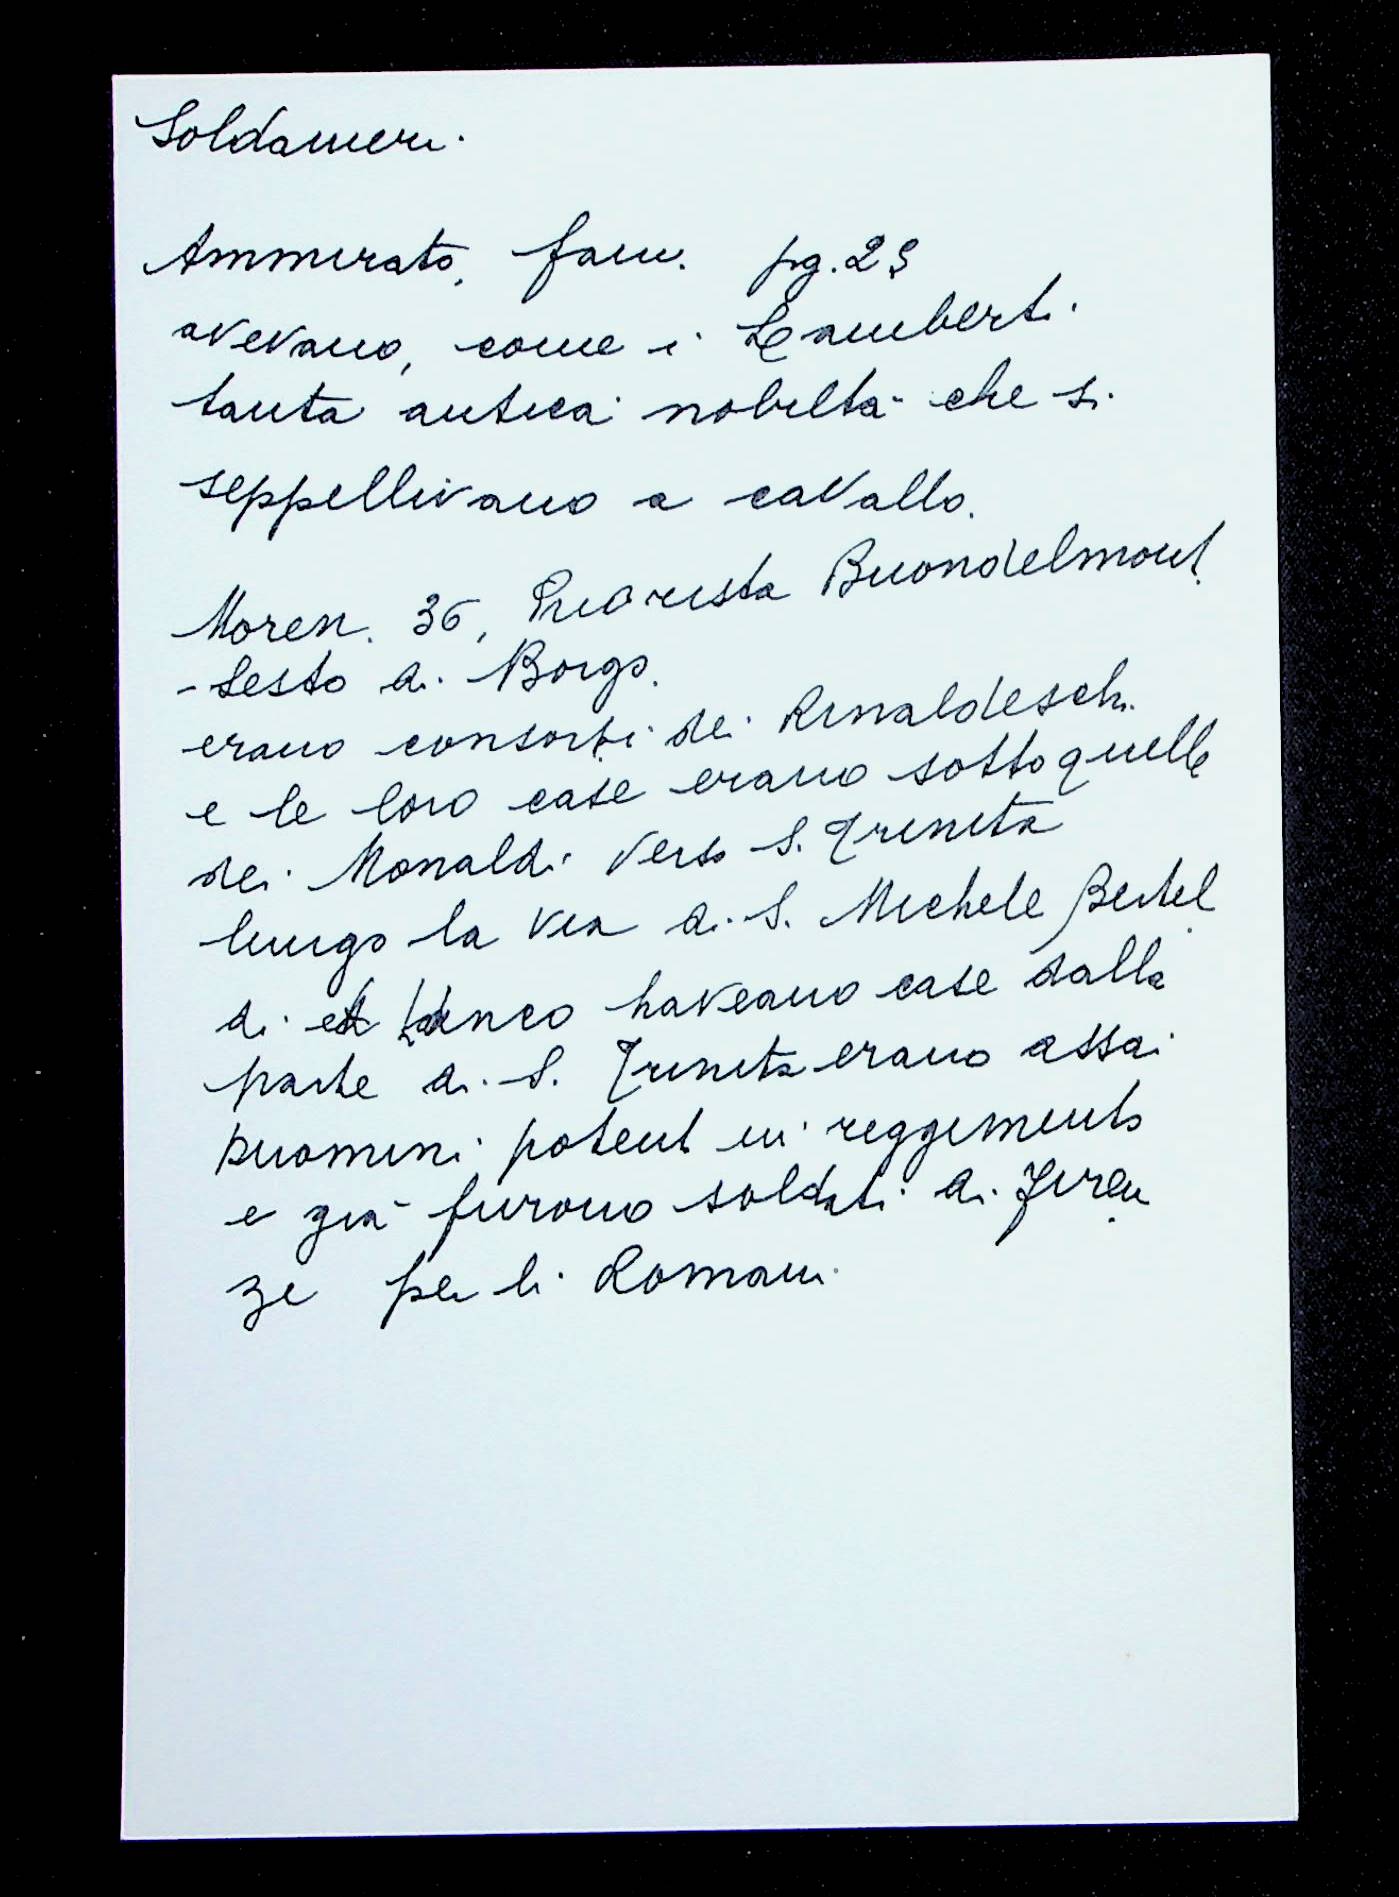 Soldanieri.
Ammirato, fam. pg. 29
avevano, come i Lamberti
tanta antica nobiltà che si
seppellivano a cavallo.
Moren. 36, Priorista Buondelmont.
- Sesto di Borgo.
erano consorti dei Rinaldeschi
e le loro case erano sotto quelle
dei Monaldi verso S. Trinita
lungo la via di S. Michele Bertel
di haveano case dalla
parte di S. Trinita erano assai
huomini potenti in reggimento
e già furono soldati di Firen
ze per li Romani.